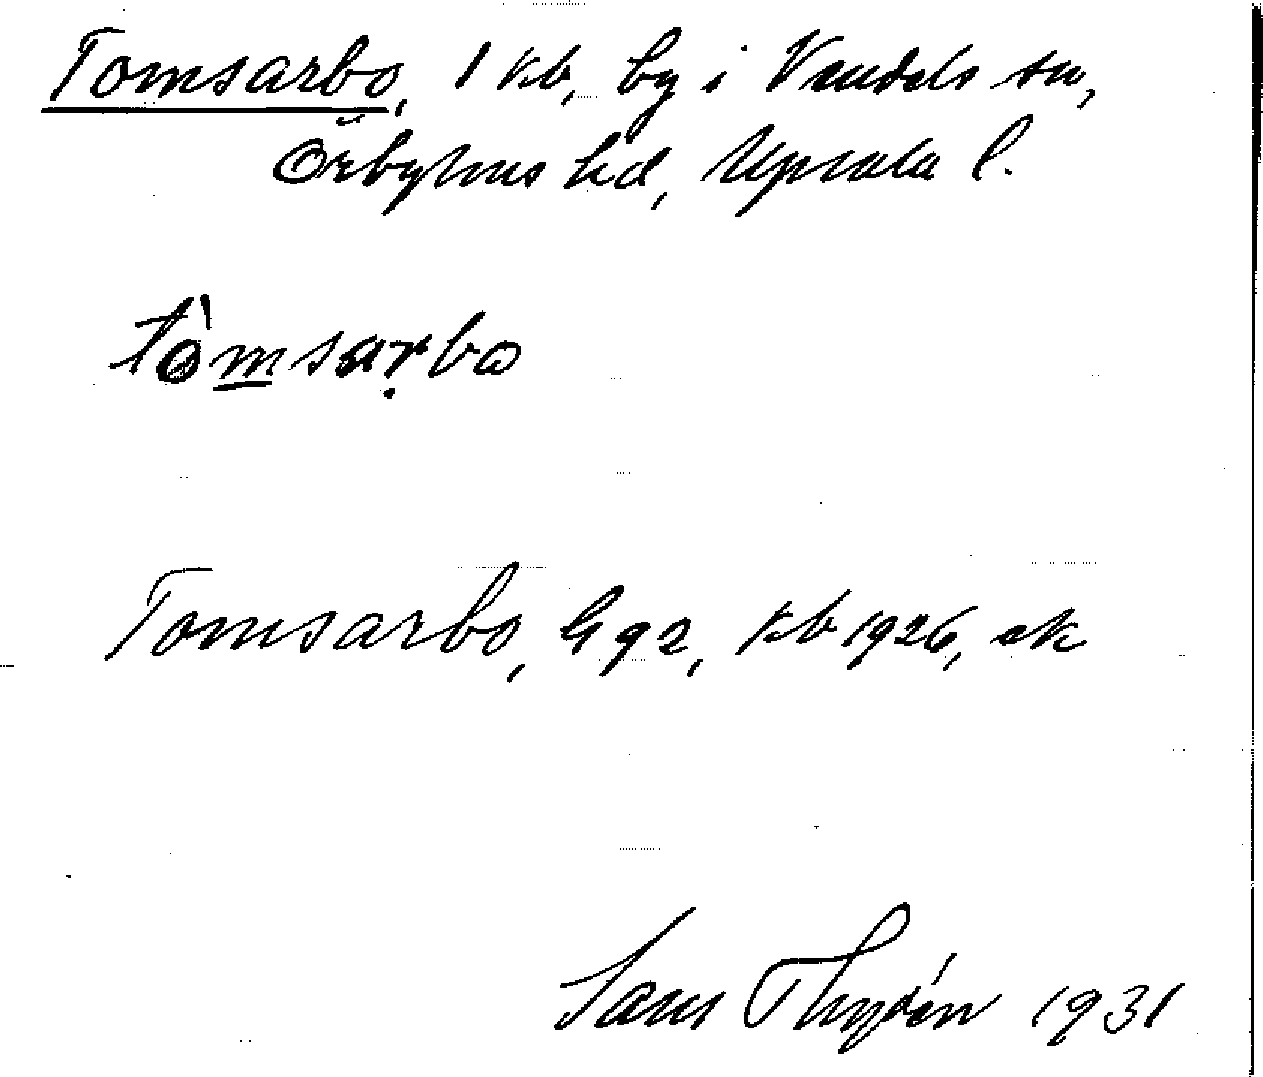 Tomsarbo, 1 kb, by i Vendels sn,
Örbyhus hd, Upsala l.
tòmsarbo
Tomsarbo, G 92, kb 1926, ek
1931